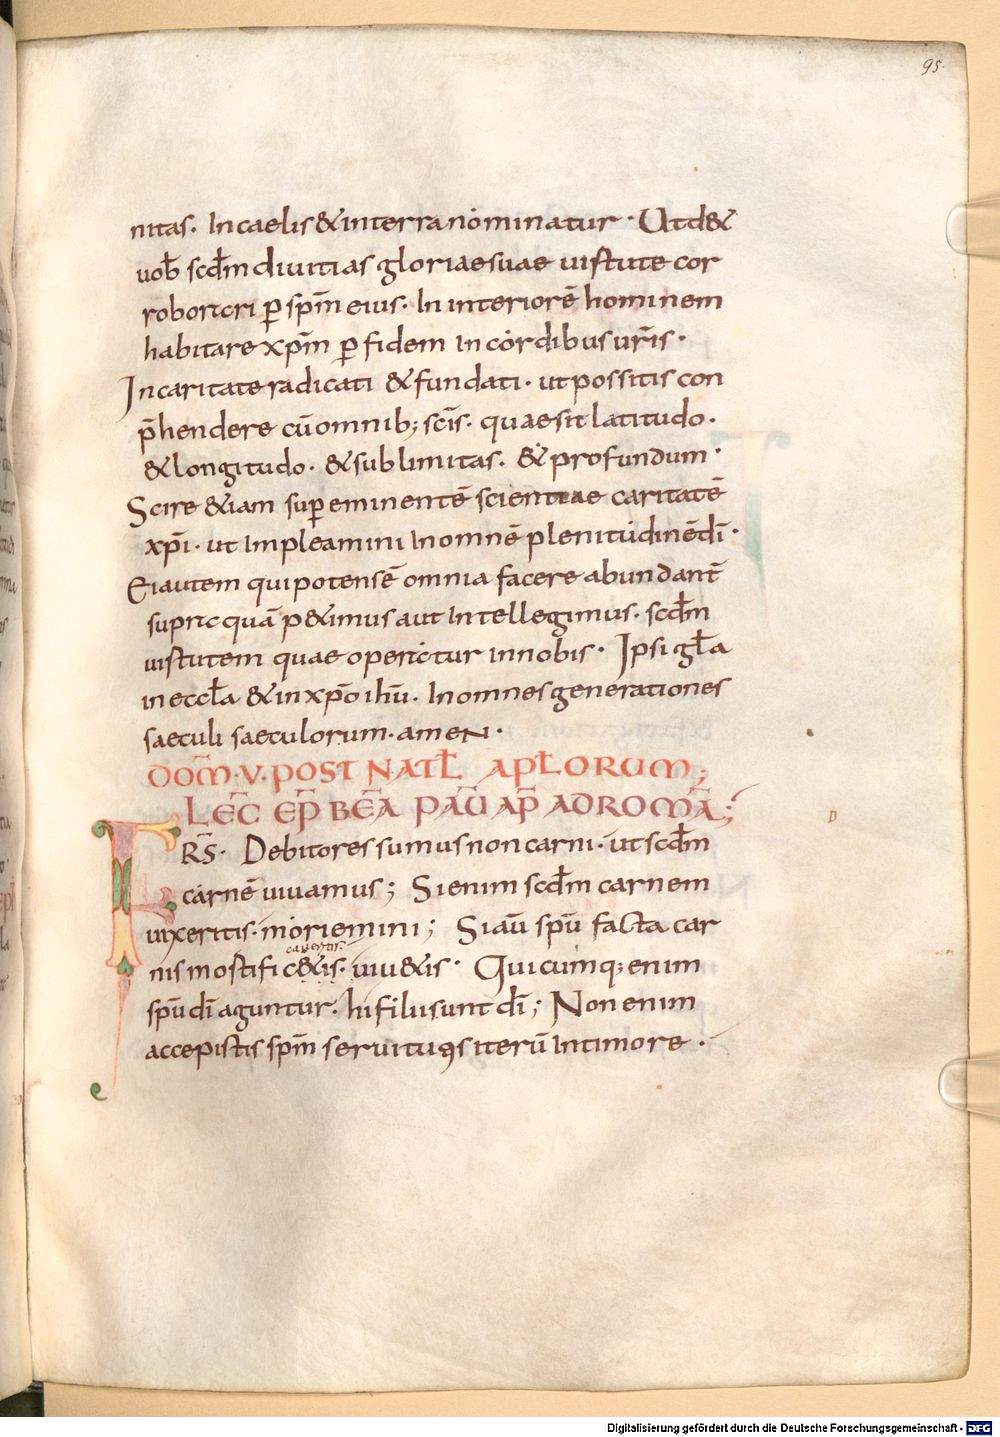 95.
nitas. In caelis & in terra nominatur · Ut d&
uob̄ scd̄m diuitias gloriae suae uirtute cor
roborari p̄ sp̄m eius. In interiorē hominem
habitare xp̄m p̄ fidem In cordibus ur̄is ·
In caritate radicati & fundati · ut possitis con
p̄hendere cū omnib; sc̄is. quae sit latitudo.
& longitudo. & sublimitas. & profundum ·
Scire &iam sup̄eminentē scientiae caritatē
xp̄i · ut Impleamini In omnē plenitudinē dī ·
Ei autem qui potens ē omnia facere abundant̄
supra quā p&imus aut Intellegimus. scd̄m
uirtutem quae operatur in nobis · Ipsi gl̄a
in eccl̄a & in xp̄o ihū. In omnes generationes
saeculi saeculorum. amen ·
DOM̄ · V · POST NATL̄ APL̄ORUM;
LEC̄ EP̄ BĒA PAŪ AP̄ AD ROMĀ;
FRS̄ · Debitores sumus non carni · ut scd̄m
carnē uiuamus; Si enim scd̄m carnem
uixeritis. moriemini; Si aū spū facta car
caueritis
nis mortific&is. uiu&is · Quicumq; enim
spū dī aguntur. hi filii sunt dī; Non enim
accepistis sp̄m seruitutis iterū In timore ·
D
Digitalisierung gefördert durch die Deutsche Forschungsgemeinschaft - DFG